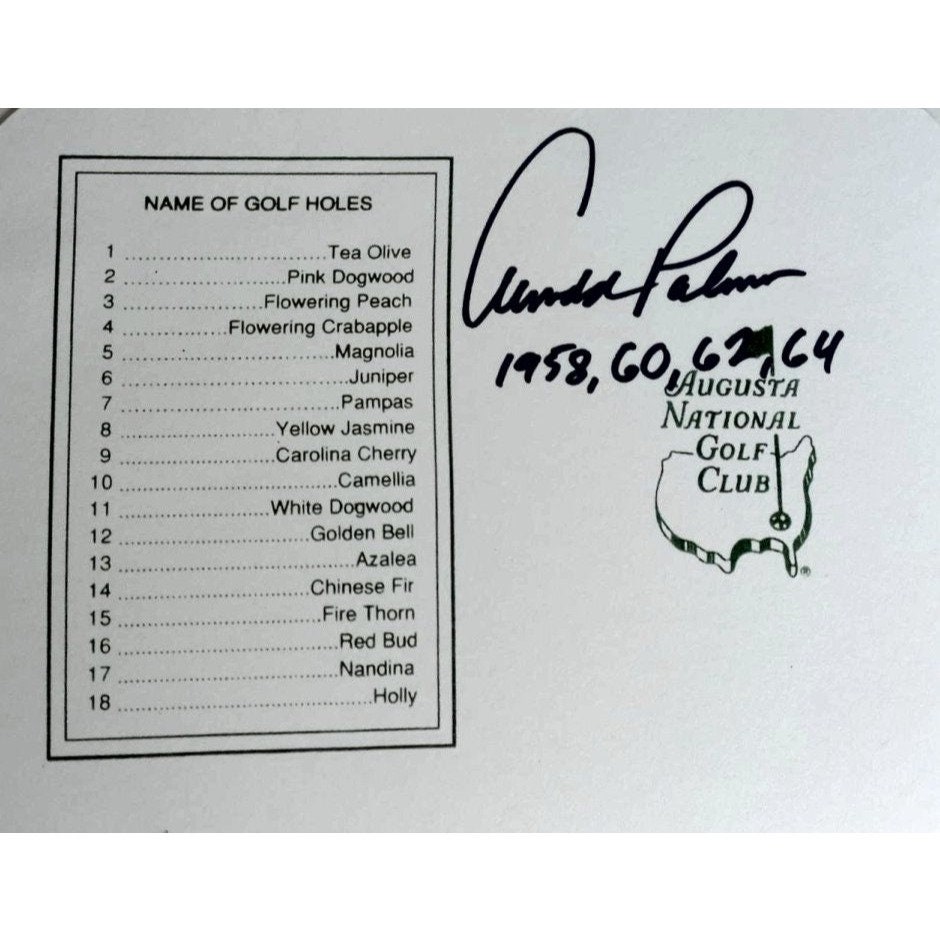 NAME OF GOLF HOLES
1 ..............................Tea Olive
2 ........................Pink Dogwood
3 .....................Flowering Peach
4 ...............Flowering Crabapple
5 ...............................Magnolia
6 .................................Juniper
7 ................................Pampas
8 ......................Yellow Jasmine
9 ......................Carolina Cherry
10 ...............................Camellia
11 .....................White Dogwood
12 ...........................Golden Bell
13 ..................................Azalea
14 ...........................Chinese Fir
15 .............................Fire Thorn
16 ................................Red Bud
17 ................................Nandina
18 .....................................Holly
Arnold Palmer
1958, 60, 62, 64
AUGUSTA
NATIONAL
GOLF
CLUB
®